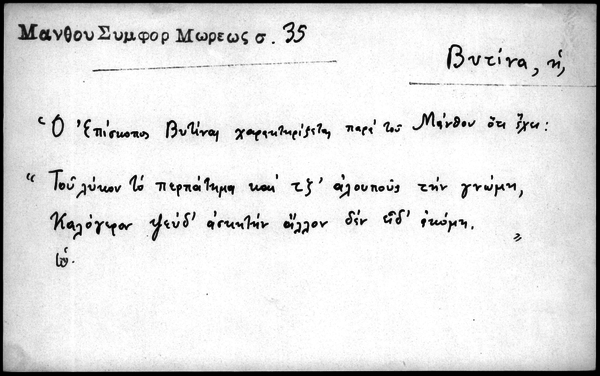 Μανθου Συμφορ Μωρεως σ. 35
Βυτίνα, ἡ,
Ὁ Ἐπίσκοπος Βυτίνας χαρακτηρίζεται παρὰ τοῦ Μάνθου ὅτι ἔχει:
"Τοῦ λύκου τὸ περπάτημα καὶ τζ' ἀλουποῦς τὴν γνώμη,
Καλόγερον ψευδ' ἀσκητὴν ἄλλον δὲν εἶδ' ἀκόμη. "